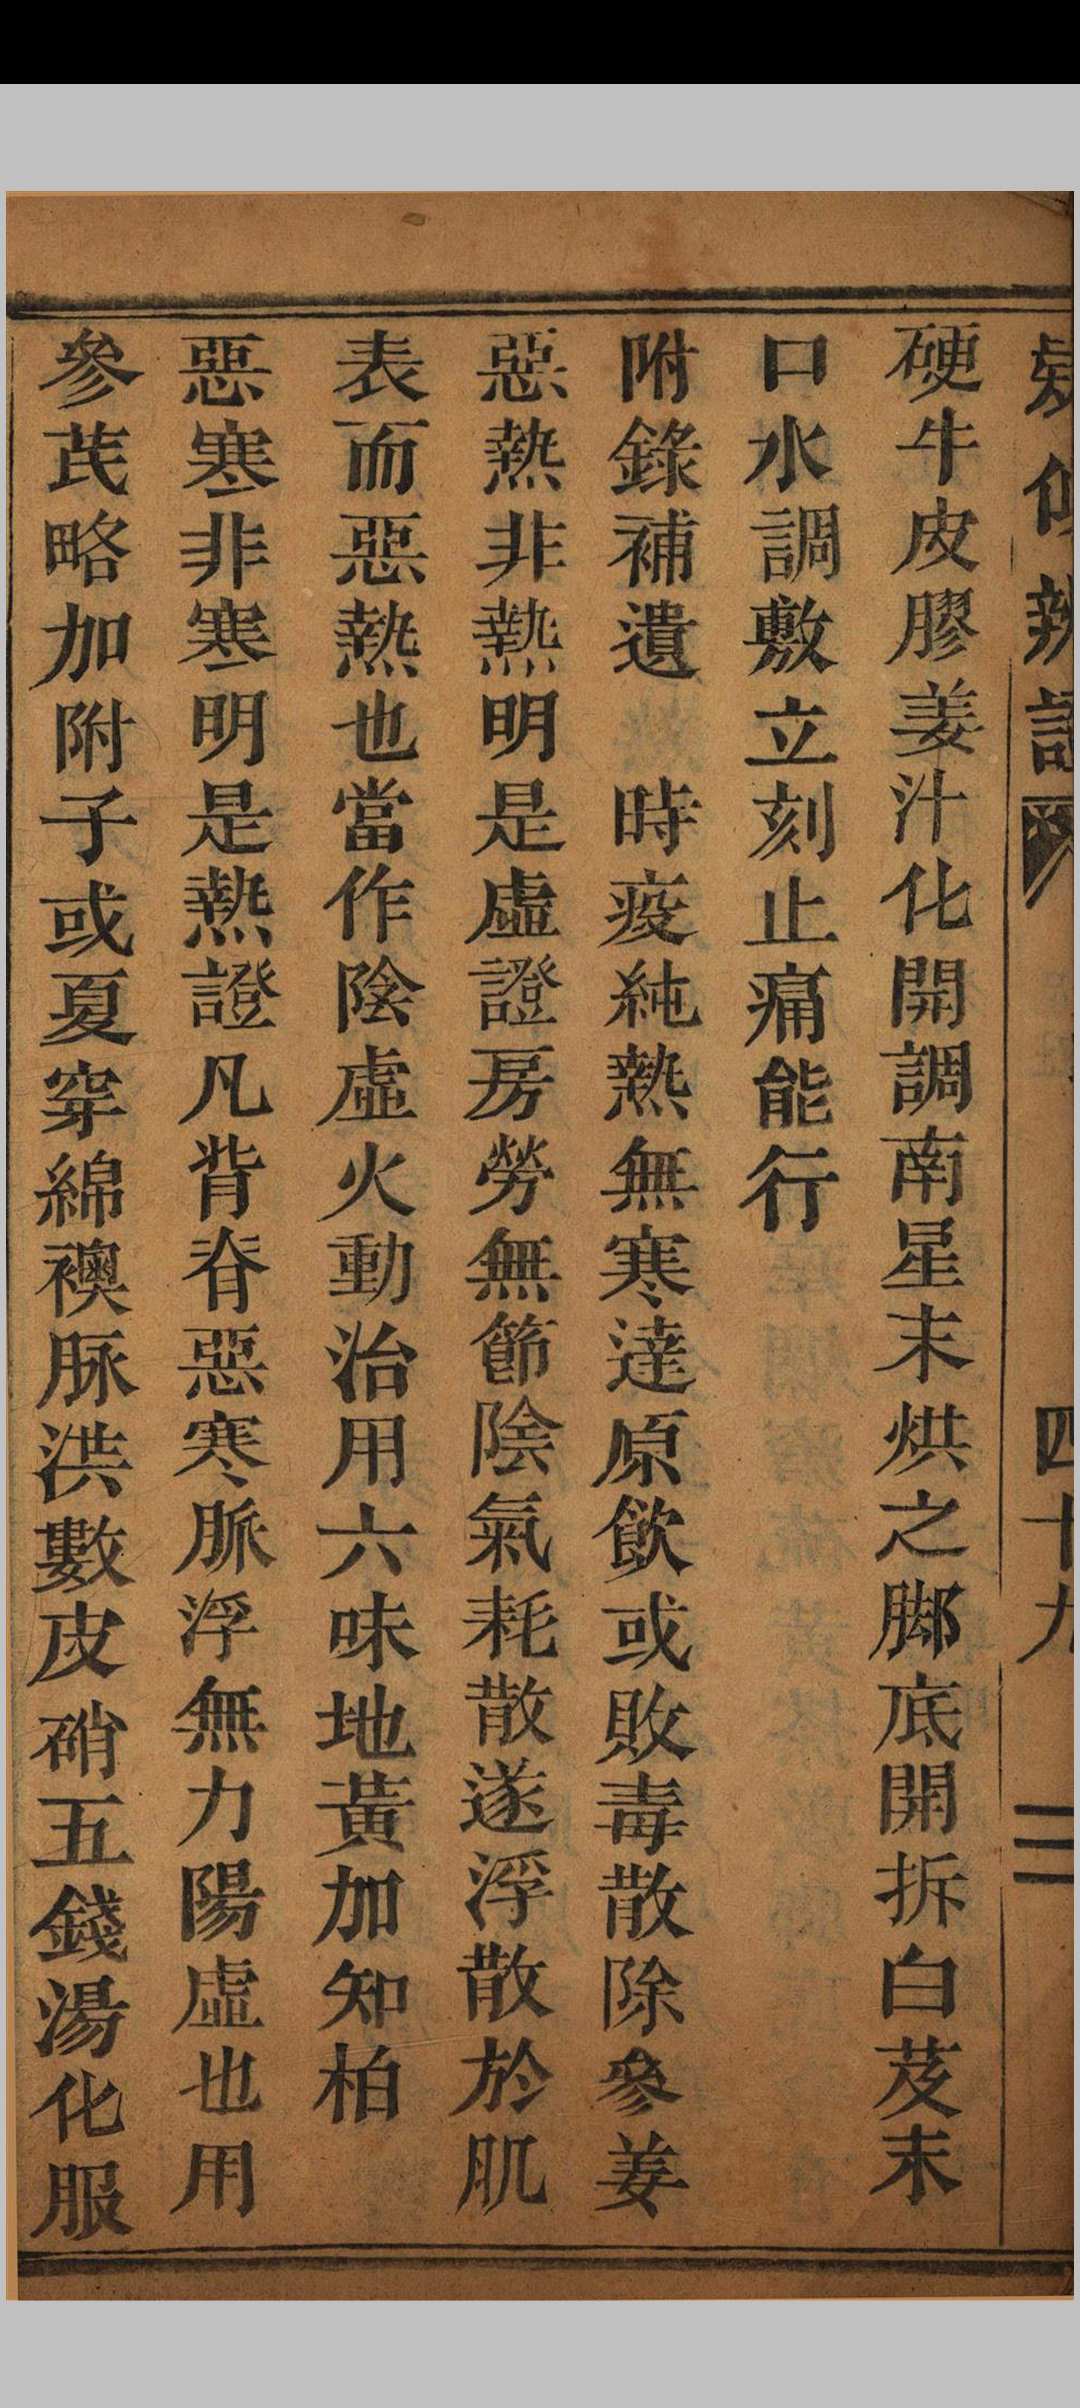 疑似辨證
四十九
硬牛皮膠姜汁化開調南星末烘之脚底開拆白芨末
口水調敷立刻止痛能行
附錄補遺　時疫純熱無寒達原飲或敗毒散除參姜
惡熱非熱明是虛證房勞無節陰氣耗散遂浮散於肌
表而惡熱也當作陰虛火動治用六味地黃加知柏
惡寒非寒明是熱證凡背脊惡寒脈浮無力陽虛也用
參芪略加附子或夏穿綿襖脉洪數皮硝五錢湯化服